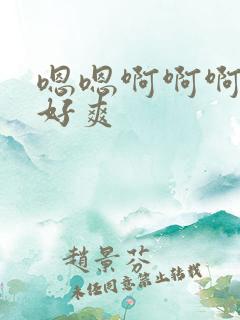 嗯嗯啊啊啊
好爽
趙景芬
未经同意禁止转载